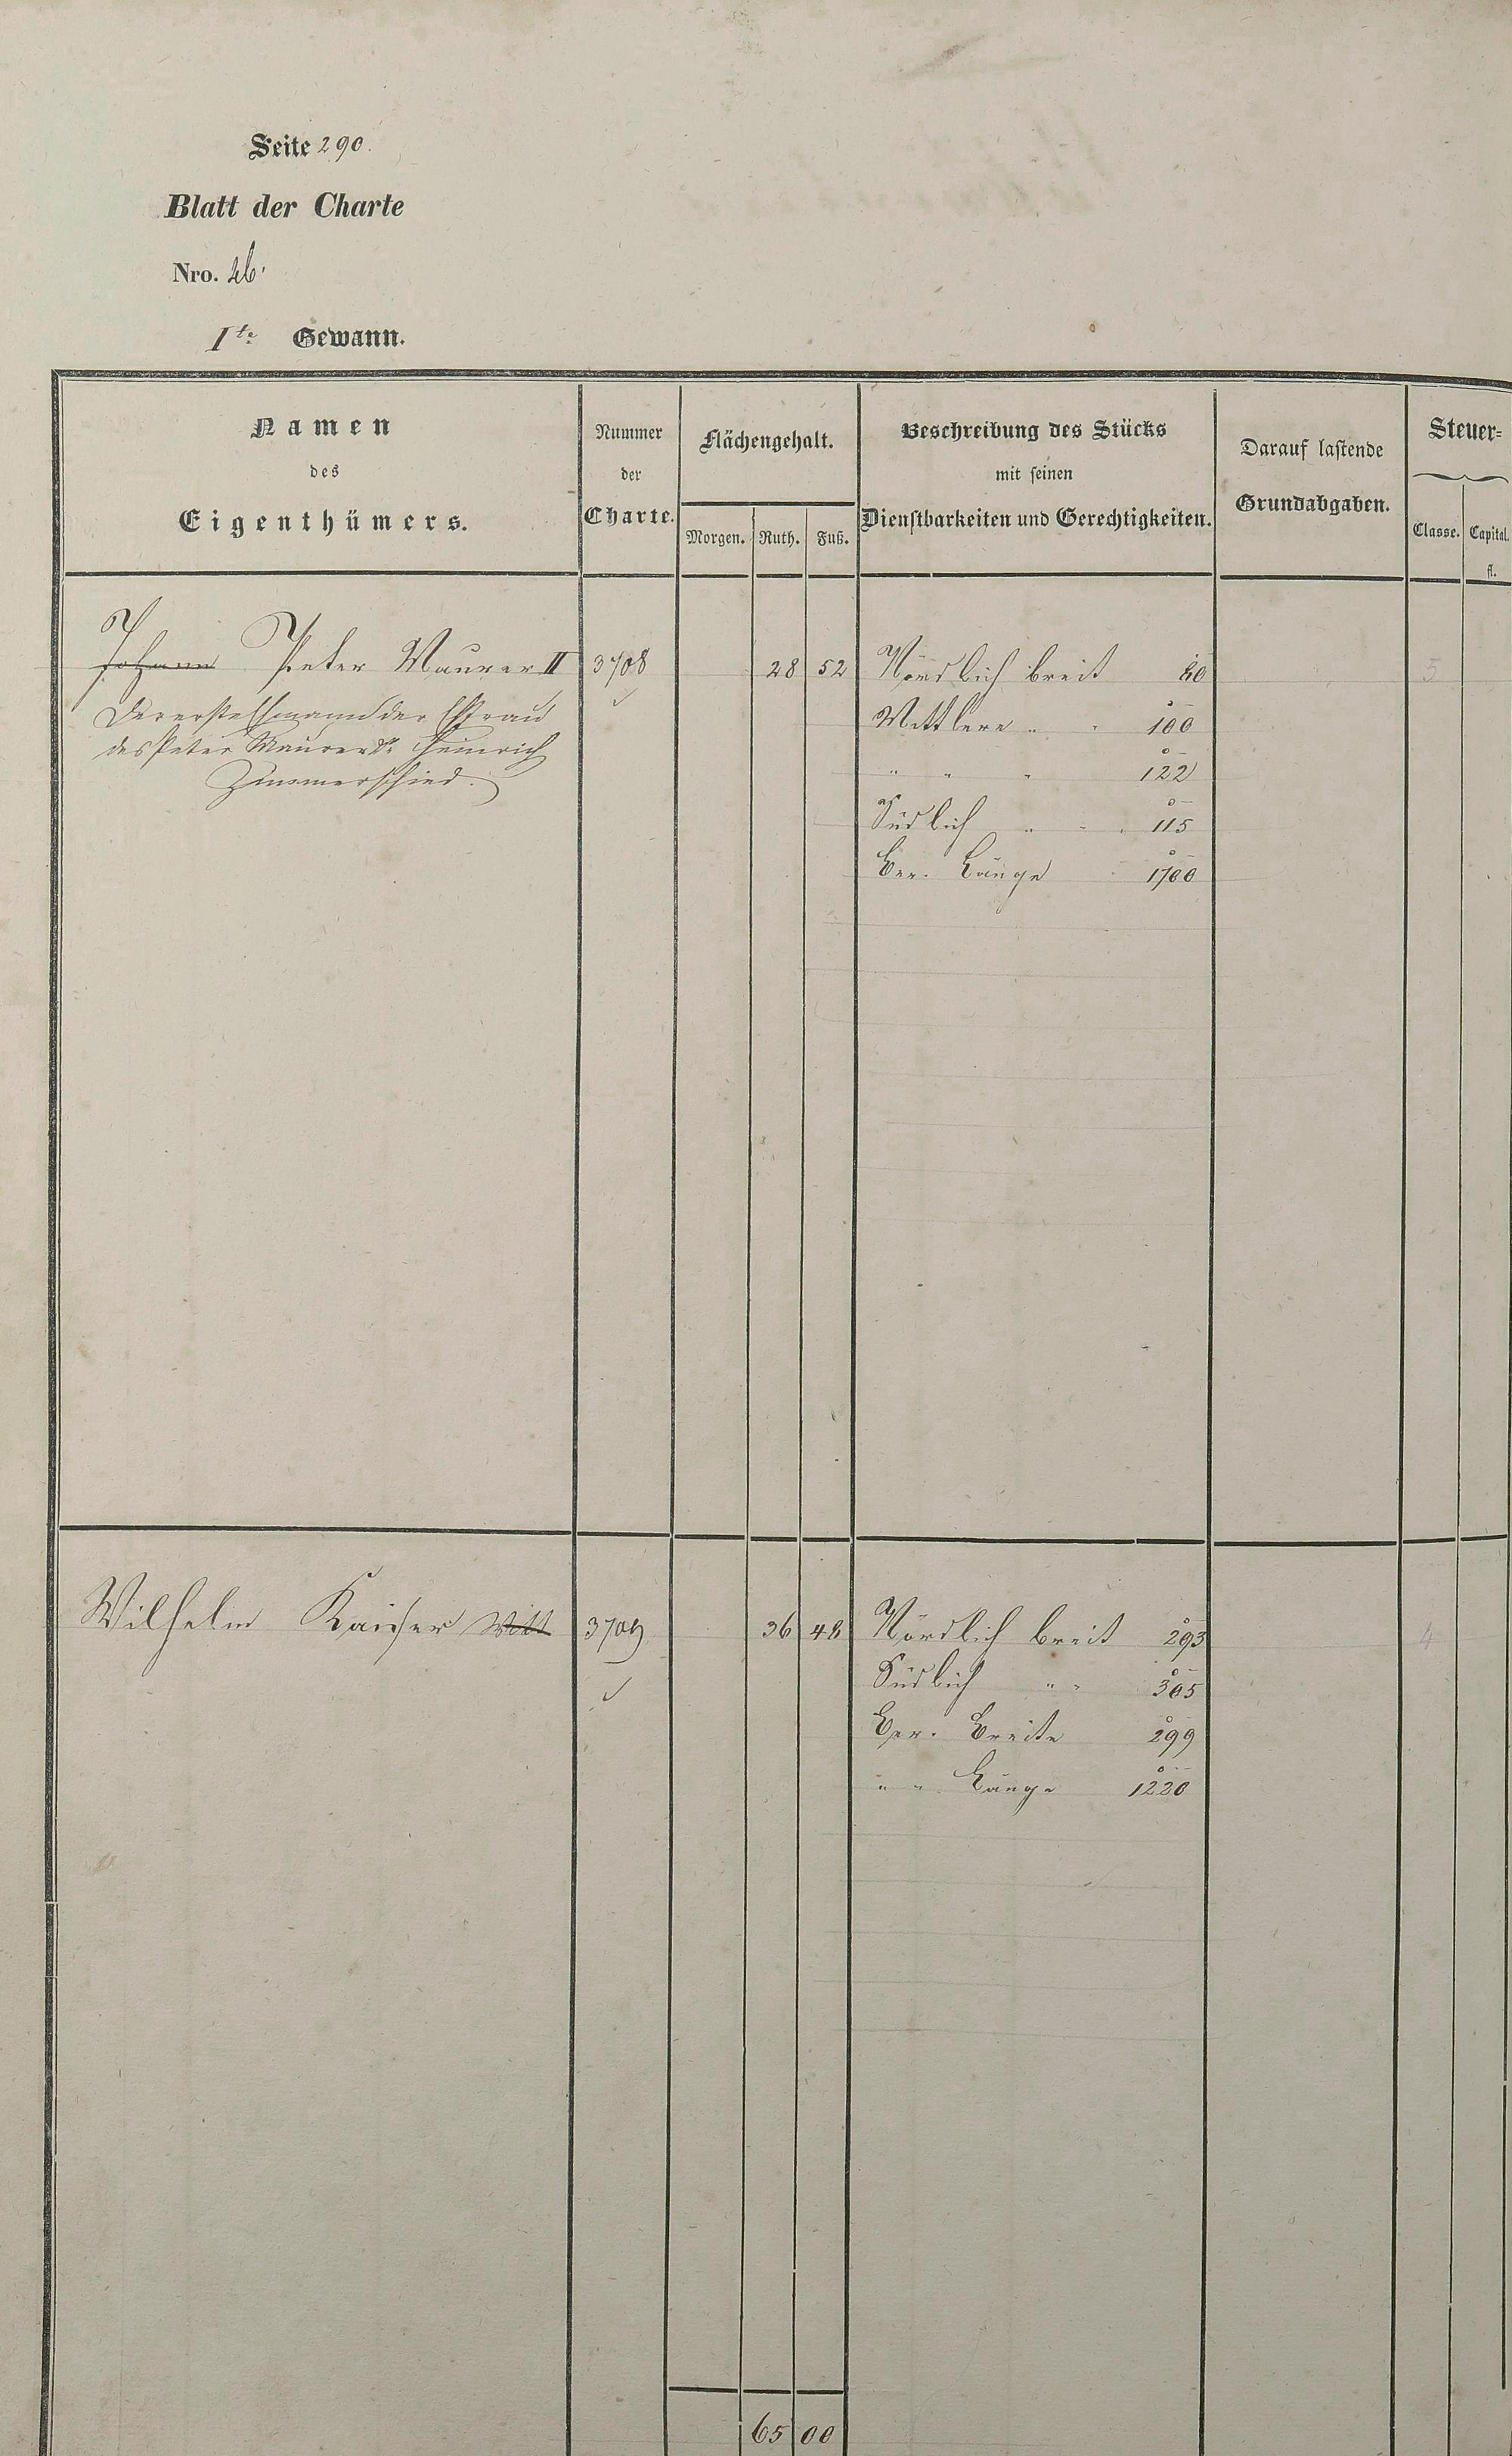 Seite 290.
Blatt der Charte
Nro. 26.
Ite Gewann.
Namen
des
Eigenthümers.
Nummer
der
Charte.
Flächengehalt.
Morgen. Ruth. Fuß.
Beschreibung des Stücks
mit seinen
Dienstbarkeiten und Gerechtigkeiten.
Darauf lastende
Grundabgaben.
Steuer=
Classe. Capital.
fl.
Johann Peter Maurer II 3708 28 52 Nördlich breit 80 5
Der erste Ehmann der Ehfrau
des Peter Maurer Heinrich
Zimmerschied.
Mittlere " " 100
" " " 122
Südlich " " " 115
Ber. Länge 1700
Wilhelm Kaiser Witt 3709 36 48 Nördlich breit 293 4
Südlich " " 305
Ber. Breite 299
" " Länge 1220
65 00